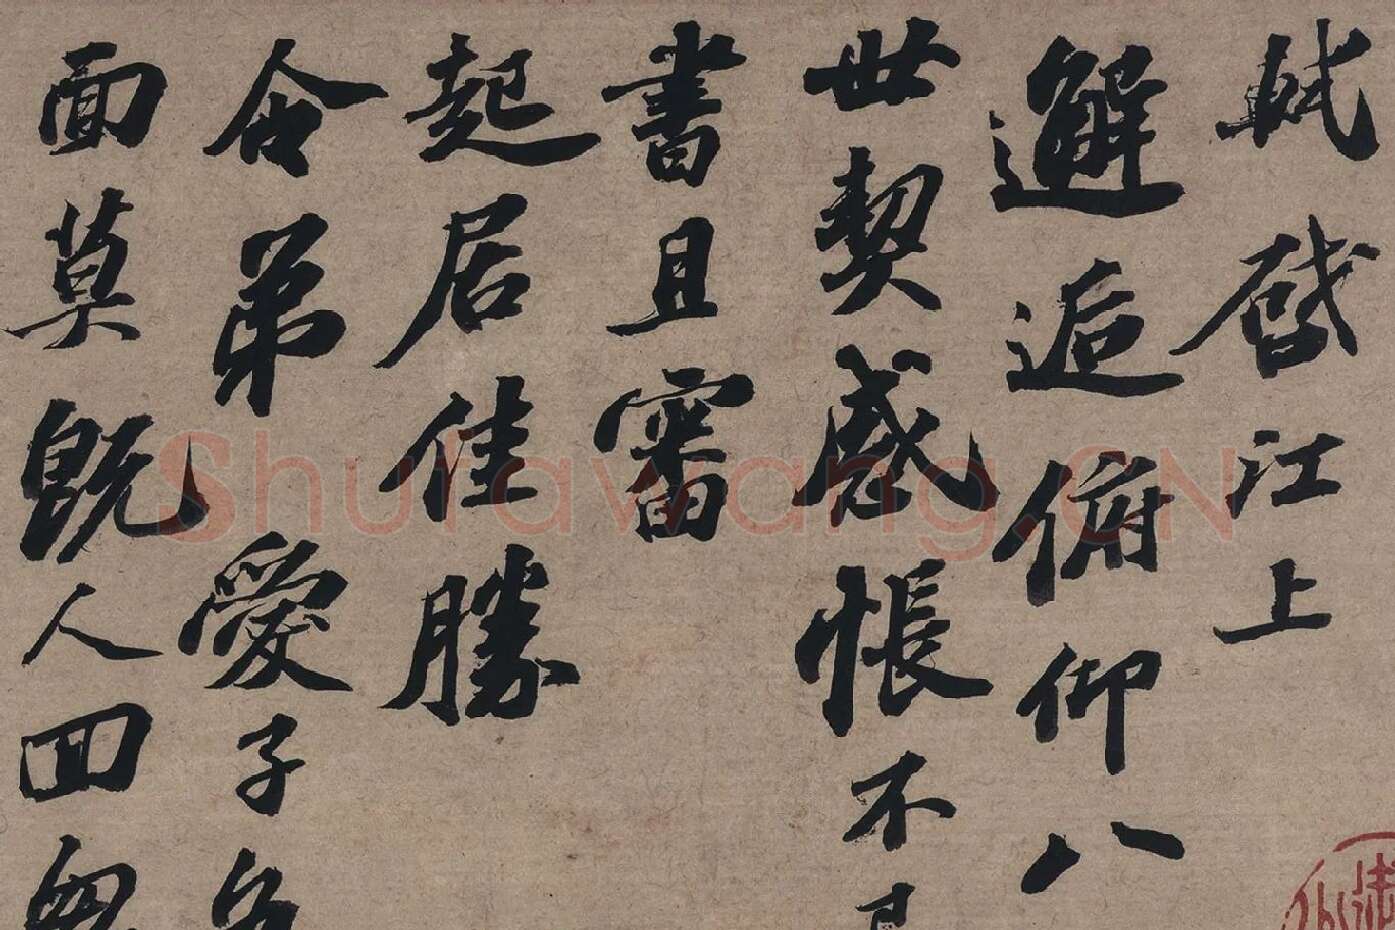 軾啓江上
邂逅俯仰八
世契感悵不已
書且審
起居佳勝
令弟愛子各
面莫既人回匆
Shufawang.CN